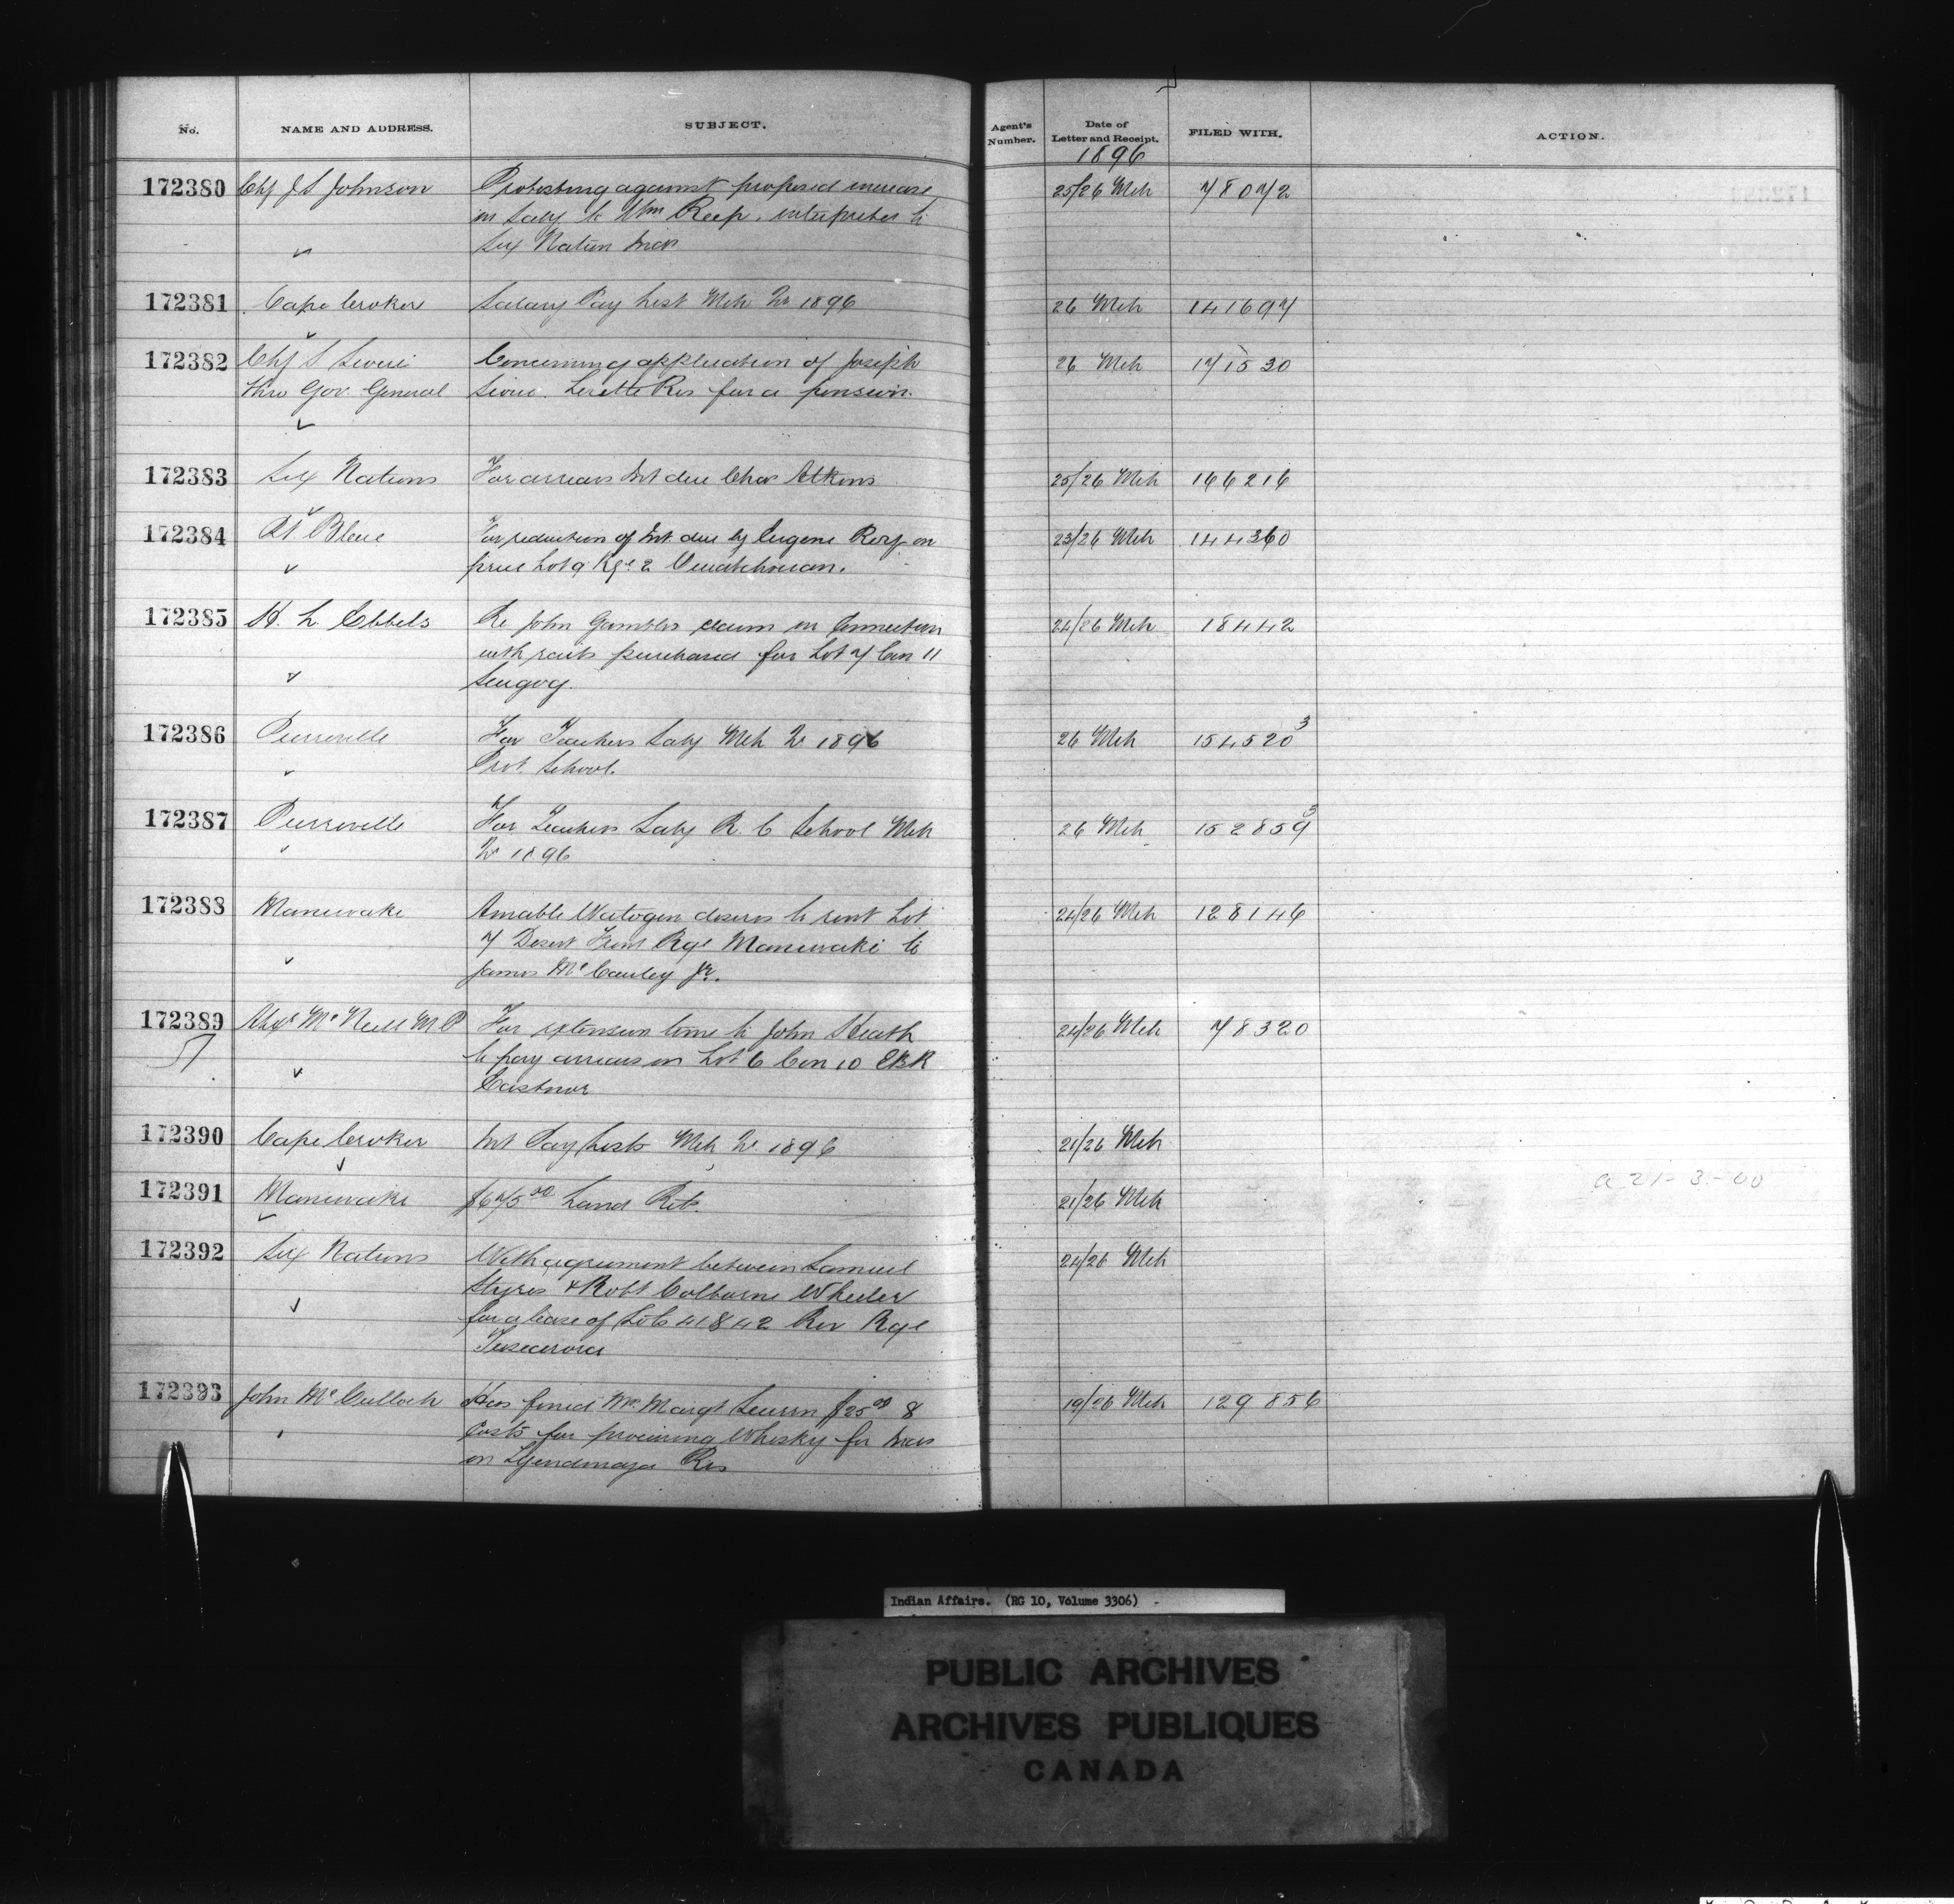 No. NAME AND ADDRESS. SUBJECT. Agent's Number. Date of Letter and Receipt. FILED WITH. ACTION.
1896
172380 Chf J S Johnson Protesting against proposed increase 25/26 Mch 78072
in Saly to Wm Reep. interpreter to
Six Nation Inds
172381 Cape Croker Salary Pay List Mch Qr 1896 26 Mch 141697
172382 Chf S Sioui Concerning application of Joseph 26 Mch 171530
thro Gov. General Sioui. Lorette Res for a pension.
172383 Six Nations For arrears Int due Chas Atkins 25/26 Mch 166216
172384 Pt Bleue For reduction of Int. due by Eugene Roy on 23/26 Mch 144360
price Lot 9 Rge 2 Ouiatchouan.
172385 H. L. Ebbels Re John Gambles claim in Connection 24/26 Mch 18442
with rails purchased for Lot 7 Con 11
Scugog.
172386 Pierreville For Teachers Saly Mch Qr 1896 26 Mch 154520 3
Prot. School.
172387 Pierreville For Teachers Saly R. C School Mch 26 Mch 152859 3
Qr 1896
172388 Maniwaki Amable Watogen desires to rent Lot 24/26 Mch 128146
7 Desert Front Rge Maniwaki to
James McCauley Jr.
172389 Alexr McNeill M P For extension time to John Heath 24/26 Mch 78320
to pay arrears on Lot 6 Con 10 EBR
Eastnor
172390 Cape Croker Int Pay Lists Mch Qr. 1896 21/26 Mch
172391 Maniwaki $675 00 Land Ret. 21/26 Mch a 21-3-00
172392 Six Nations With agreement between Samuel 24/26 Mch
Styres & Robt Colborne Wheeler
for a lease of Lots 41 & 42 Riv Rge
Tuscarora
172393 John McCulloch Has fined Mrs Margt $25 00 & 19/26 Mch 129856
Costs for procuring Whisky for Inds
on Tyendinaga Res
Indian Affairs. (RG 10, Volume 3306)
PUBLIC ARCHIVES
ARCHIVES PUBLIQUES
CANADA